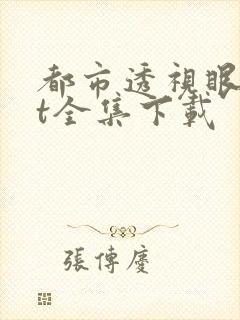 都市透視眼
t全集下載
張傳慶